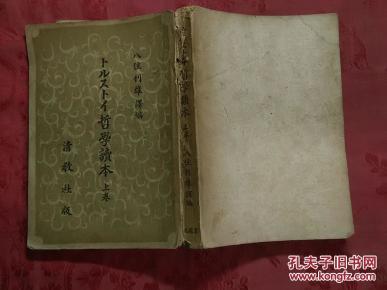 八住利雄譯編
トルストイ哲學讀本 上卷
清教社版
哲學讀本
上卷
八住利雄譯編
孔夫子旧书网